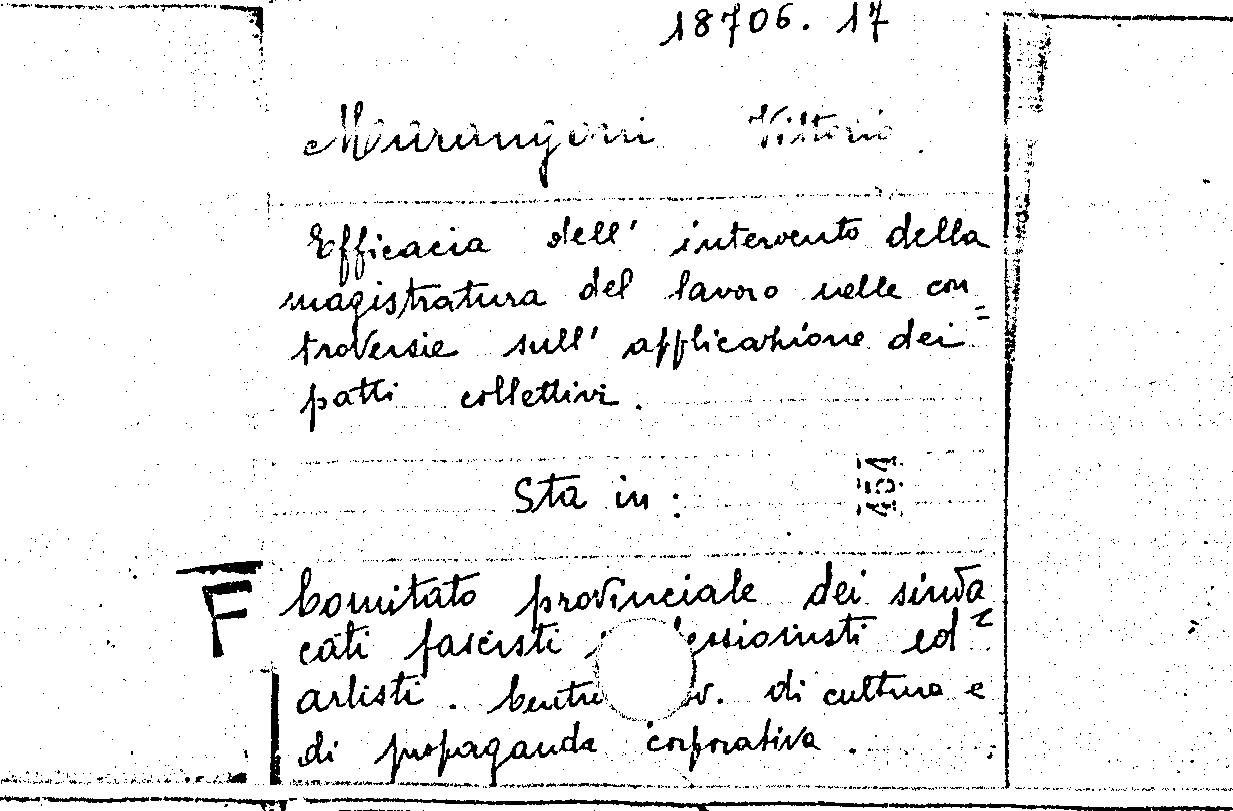 18706. 17
Marangoni Vittorio
Efficacia dell' intervento della
magistratura del lavoro nelle con=
troversie sull' applicazione dei
patti collettivi.
Sta in:
454
F Comitato provinciale dei sinda=
cati fascisti ed
artisti. di cultura e
di propaganda corporativa.